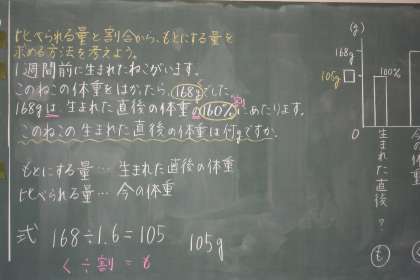 比べられる量と割合から、もとにする量を
求める方法を考えよう。
1週間前に生まれたねこがいます。
このねこの体重をはかったら、168gでした。
168gは、生まれた直後の体重の160%にあたります。
割
このねこの生まれた直後の体重は何gですか。
もとにする量…生まれた直後の体重
比べられる量…今の体重
式 168÷1.6=105 105g
く÷割=も
(g)
168g
105g
100%
0
生まれた直後
?
も
今の体